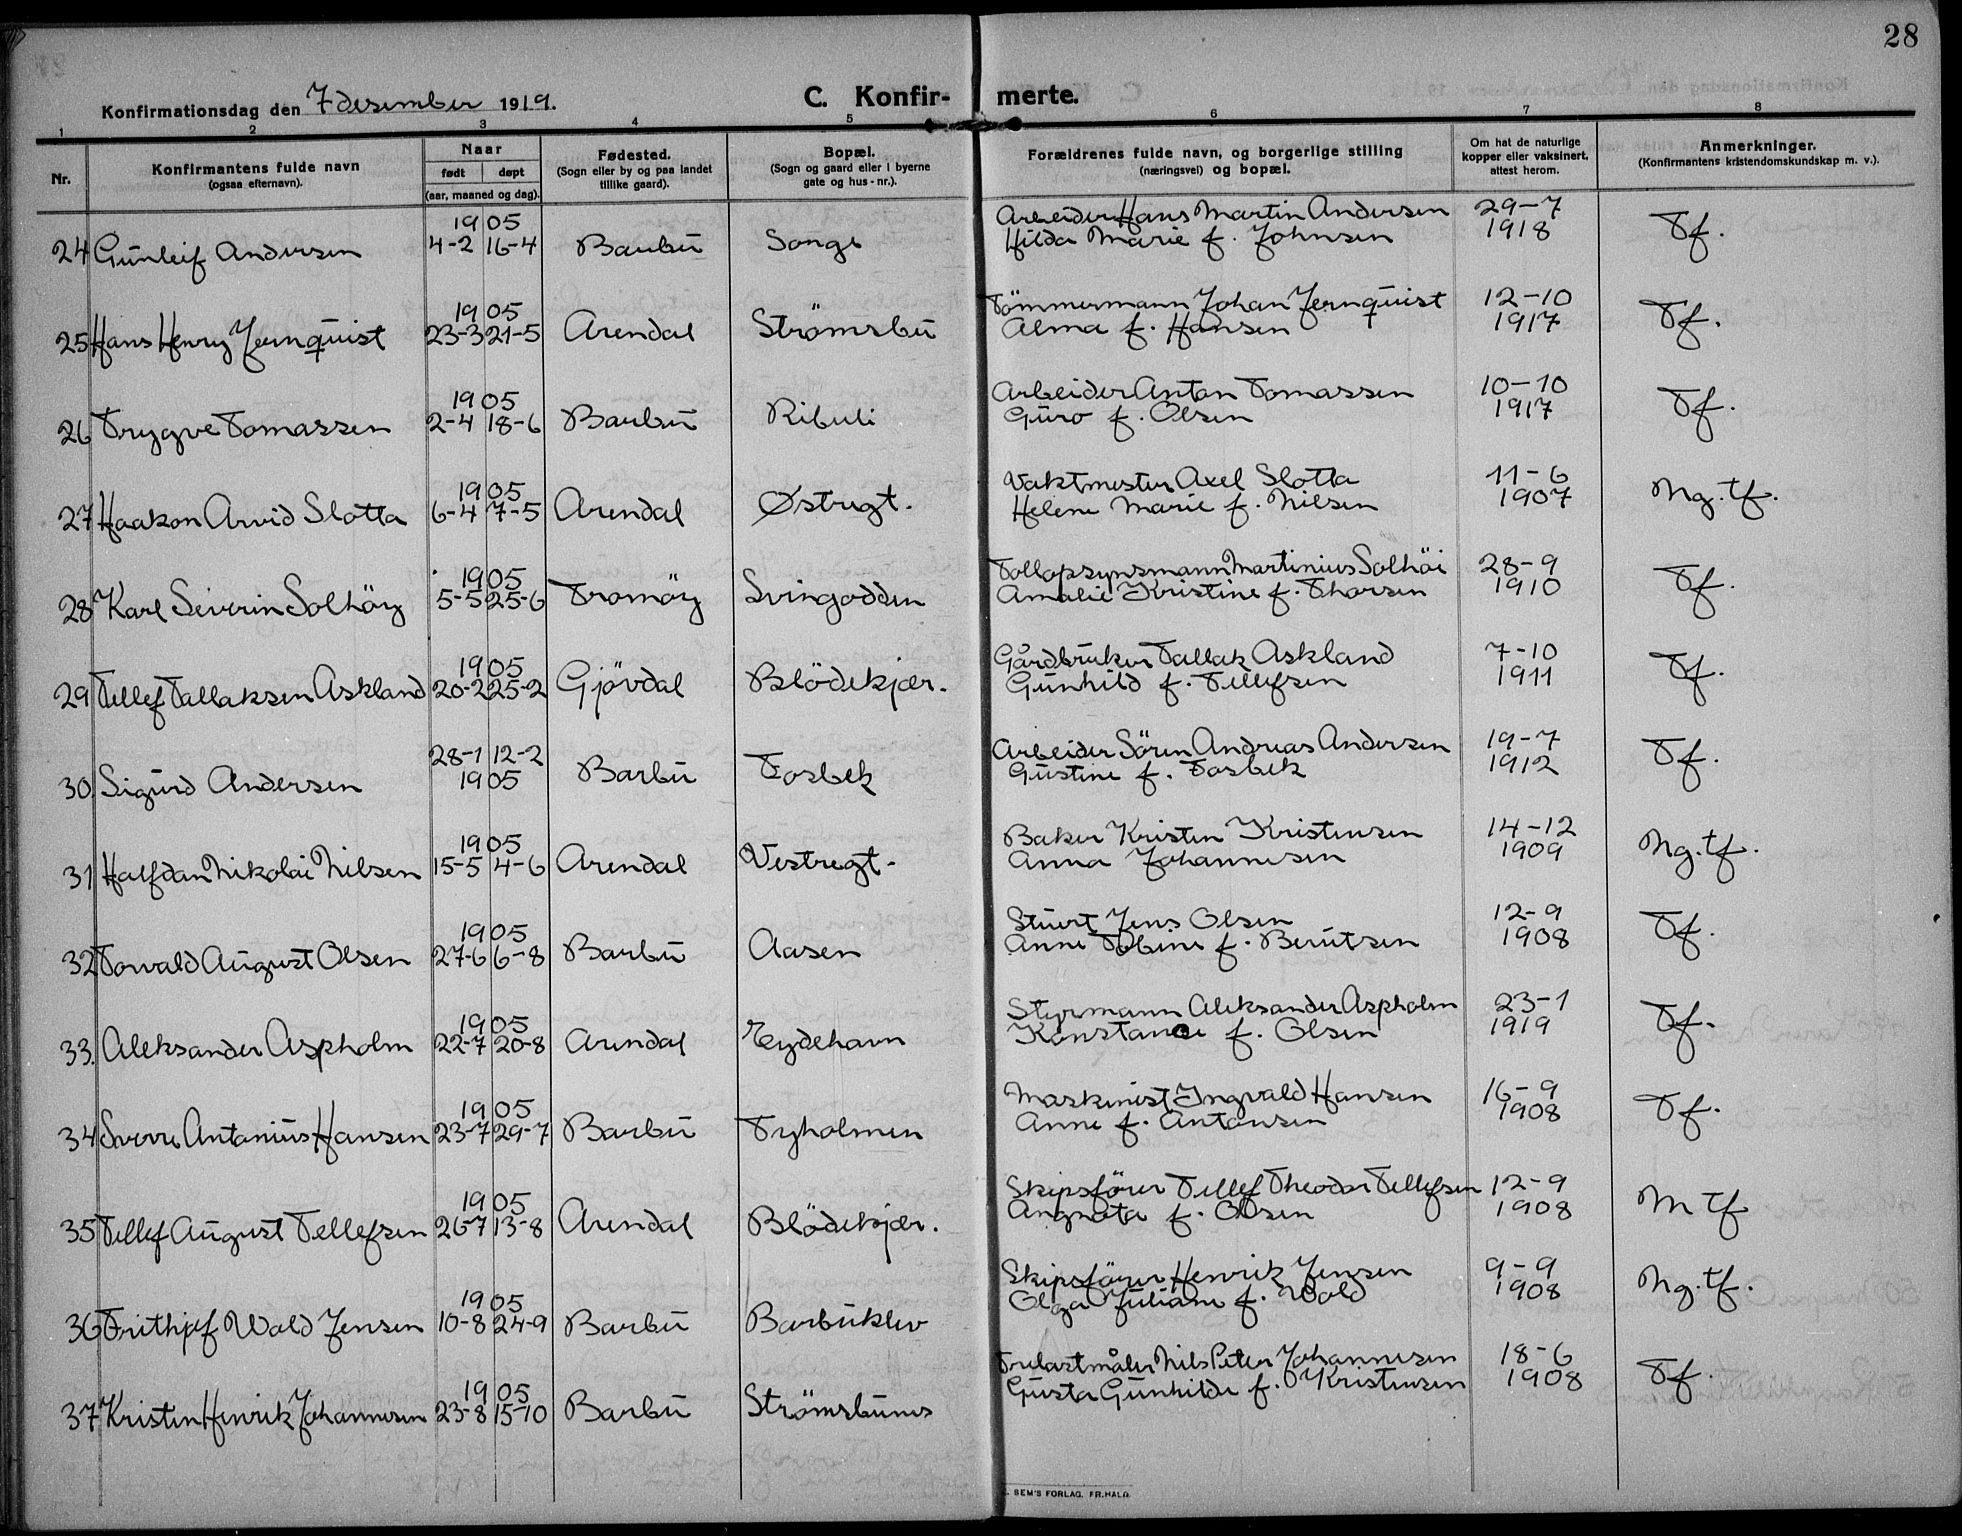 28
Konfirmationsdag den 7 desember 1919.
C. Konfir- merte.
1 2 3 4 5 6 7 8
Nr.
Konfirmantens fulde navn
(ogsaa efternavn).
Naar
født døpt
(aar, maaned og dag).
Fødested.
(Sogn eller by og paa landet
tillike gaard).
Bopæl.
(Sogn og gaard eller i byerne
gate og hus-nr.).
Forældrenes fulde navn, og borgerlige stilling
(næringsvei) og bopæl.
Om hat de naturlige
kopper eller vaksinert,
attest herom.
Anmerkninger.
(Konfirmantens kristendomskundskap m. v.).
1905 Arbeider Hans Martin Andersen 29-7
24 Gunleif Andersen 4-2 16-4 Barbu Songe Hilda Marie f. Johnsen 1918 Tf.
1905 Tömmermann Johan Jernquist 12-10
25 Hans Henry Jernquist 23-3 21-5 Arendal Strømsbu Alma f. Hansen 1917 Tf.
1905 Arbeider Anton Tomassen 10-10
26 Trygve Tomassen 2-4 18-6 Barbu Libuli Guro f. Olsen 1917 Tf.
1905 Vaktmester Axel Slotta 11-6
27 Haakon Arvid Slotta 6-4 7-5 Arendal Østregt. Helene Marie f. Nilsen 1907 Ng. tf.
1905 Tollopsynsmann Martinius Solhöi 28-9
28 Karl Severin Solhöy 5-5 25-6 Tromöy Svingodden Amalie Kristine f. Thorsen 1910 Tf.
1905 Gårdbruker Tallak Askland 7-10
29 Tellef Tallaksen Askland 20-2 25-2 Gjövdal Blödekjær. Gunhild f. Tellefsen 1911 Tf.
28-1 12-2 Arbeider Sören Andreas Andersen 19-7
30. Sigurd Andersen 1905 Barbu Fosbek Gustine f. Fosbek 1912 Tf.
1905 Baker Kristen Kristensen 14-12
31 Halfdan Nikolai Nilsen 15-5 4-6 Arendal Vestregt. Anna Johannesen 1909 Ng. tf.
1905 Stuert Jens Olsen 12-9
32 Torvald August Olsen 27-6 6-8 Barbu Aasen Anne Tobine f. Berntsen 1908 Tf.
1905 Styrmann Aleksander Aspholm 23-1
33. Aleksander Aspholm 22-7 20-8 Arendal Eydehavn Konstance f. Olsen 1919 Tf.
1905 Maskinist Ingvald Hansen 16-9
34 Sverre Antonius Hansen 23-7 29-7 Barbu Tyholmen Anne f. Antonsen 1908 Tf.
1905 Skipsförer Tellef Theodor Tellefsen 12-9
35 Tellef August Tellefsen 26-7 13-8 Arendal Blödekjær. f. Olsen 1908 M tf
1905 Skipsförer Henrik Jensen 9-9
36 Frithjof Wold Jensen 10-8 24-9 Barbu Barbuklev Olga Juliane f. Wold 1908 Ng. tf.
1905 Trelastmåler Nils Peter Johannesen 18-6
37 Kristen Henrik Johannesen 23-8 15-10 Barbu Strømsbunes Gusta Gunhilde f. Kristensen 1908 Tf.
SEM'S FORLAG. FR.HALD.